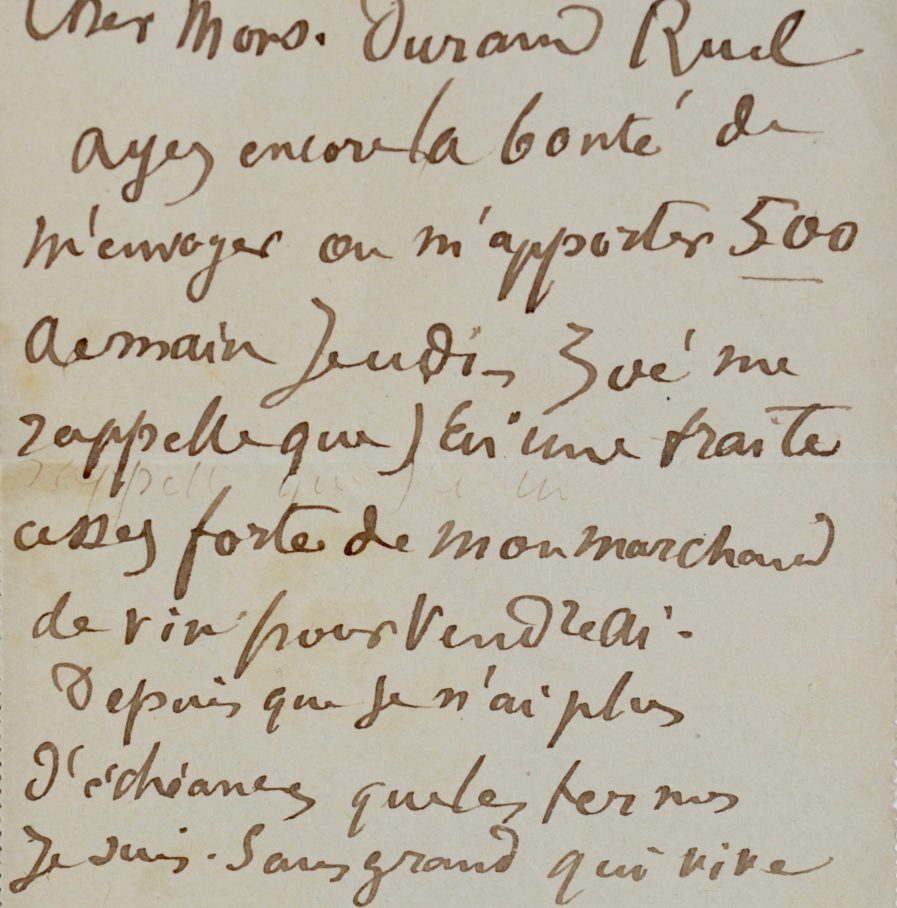 Cher Mons. Durand Ruel
ayez encore la bonté de
m'envoyer ou m'apporter 500
demain Jeudi, Zoé me
rappelle que j'ai une traite
assez forte de mon marchand
de vin pour Vendredi.
Depuis que je n'ai plus
d'échéances que les termes
Je suis. Sans grand qui vive